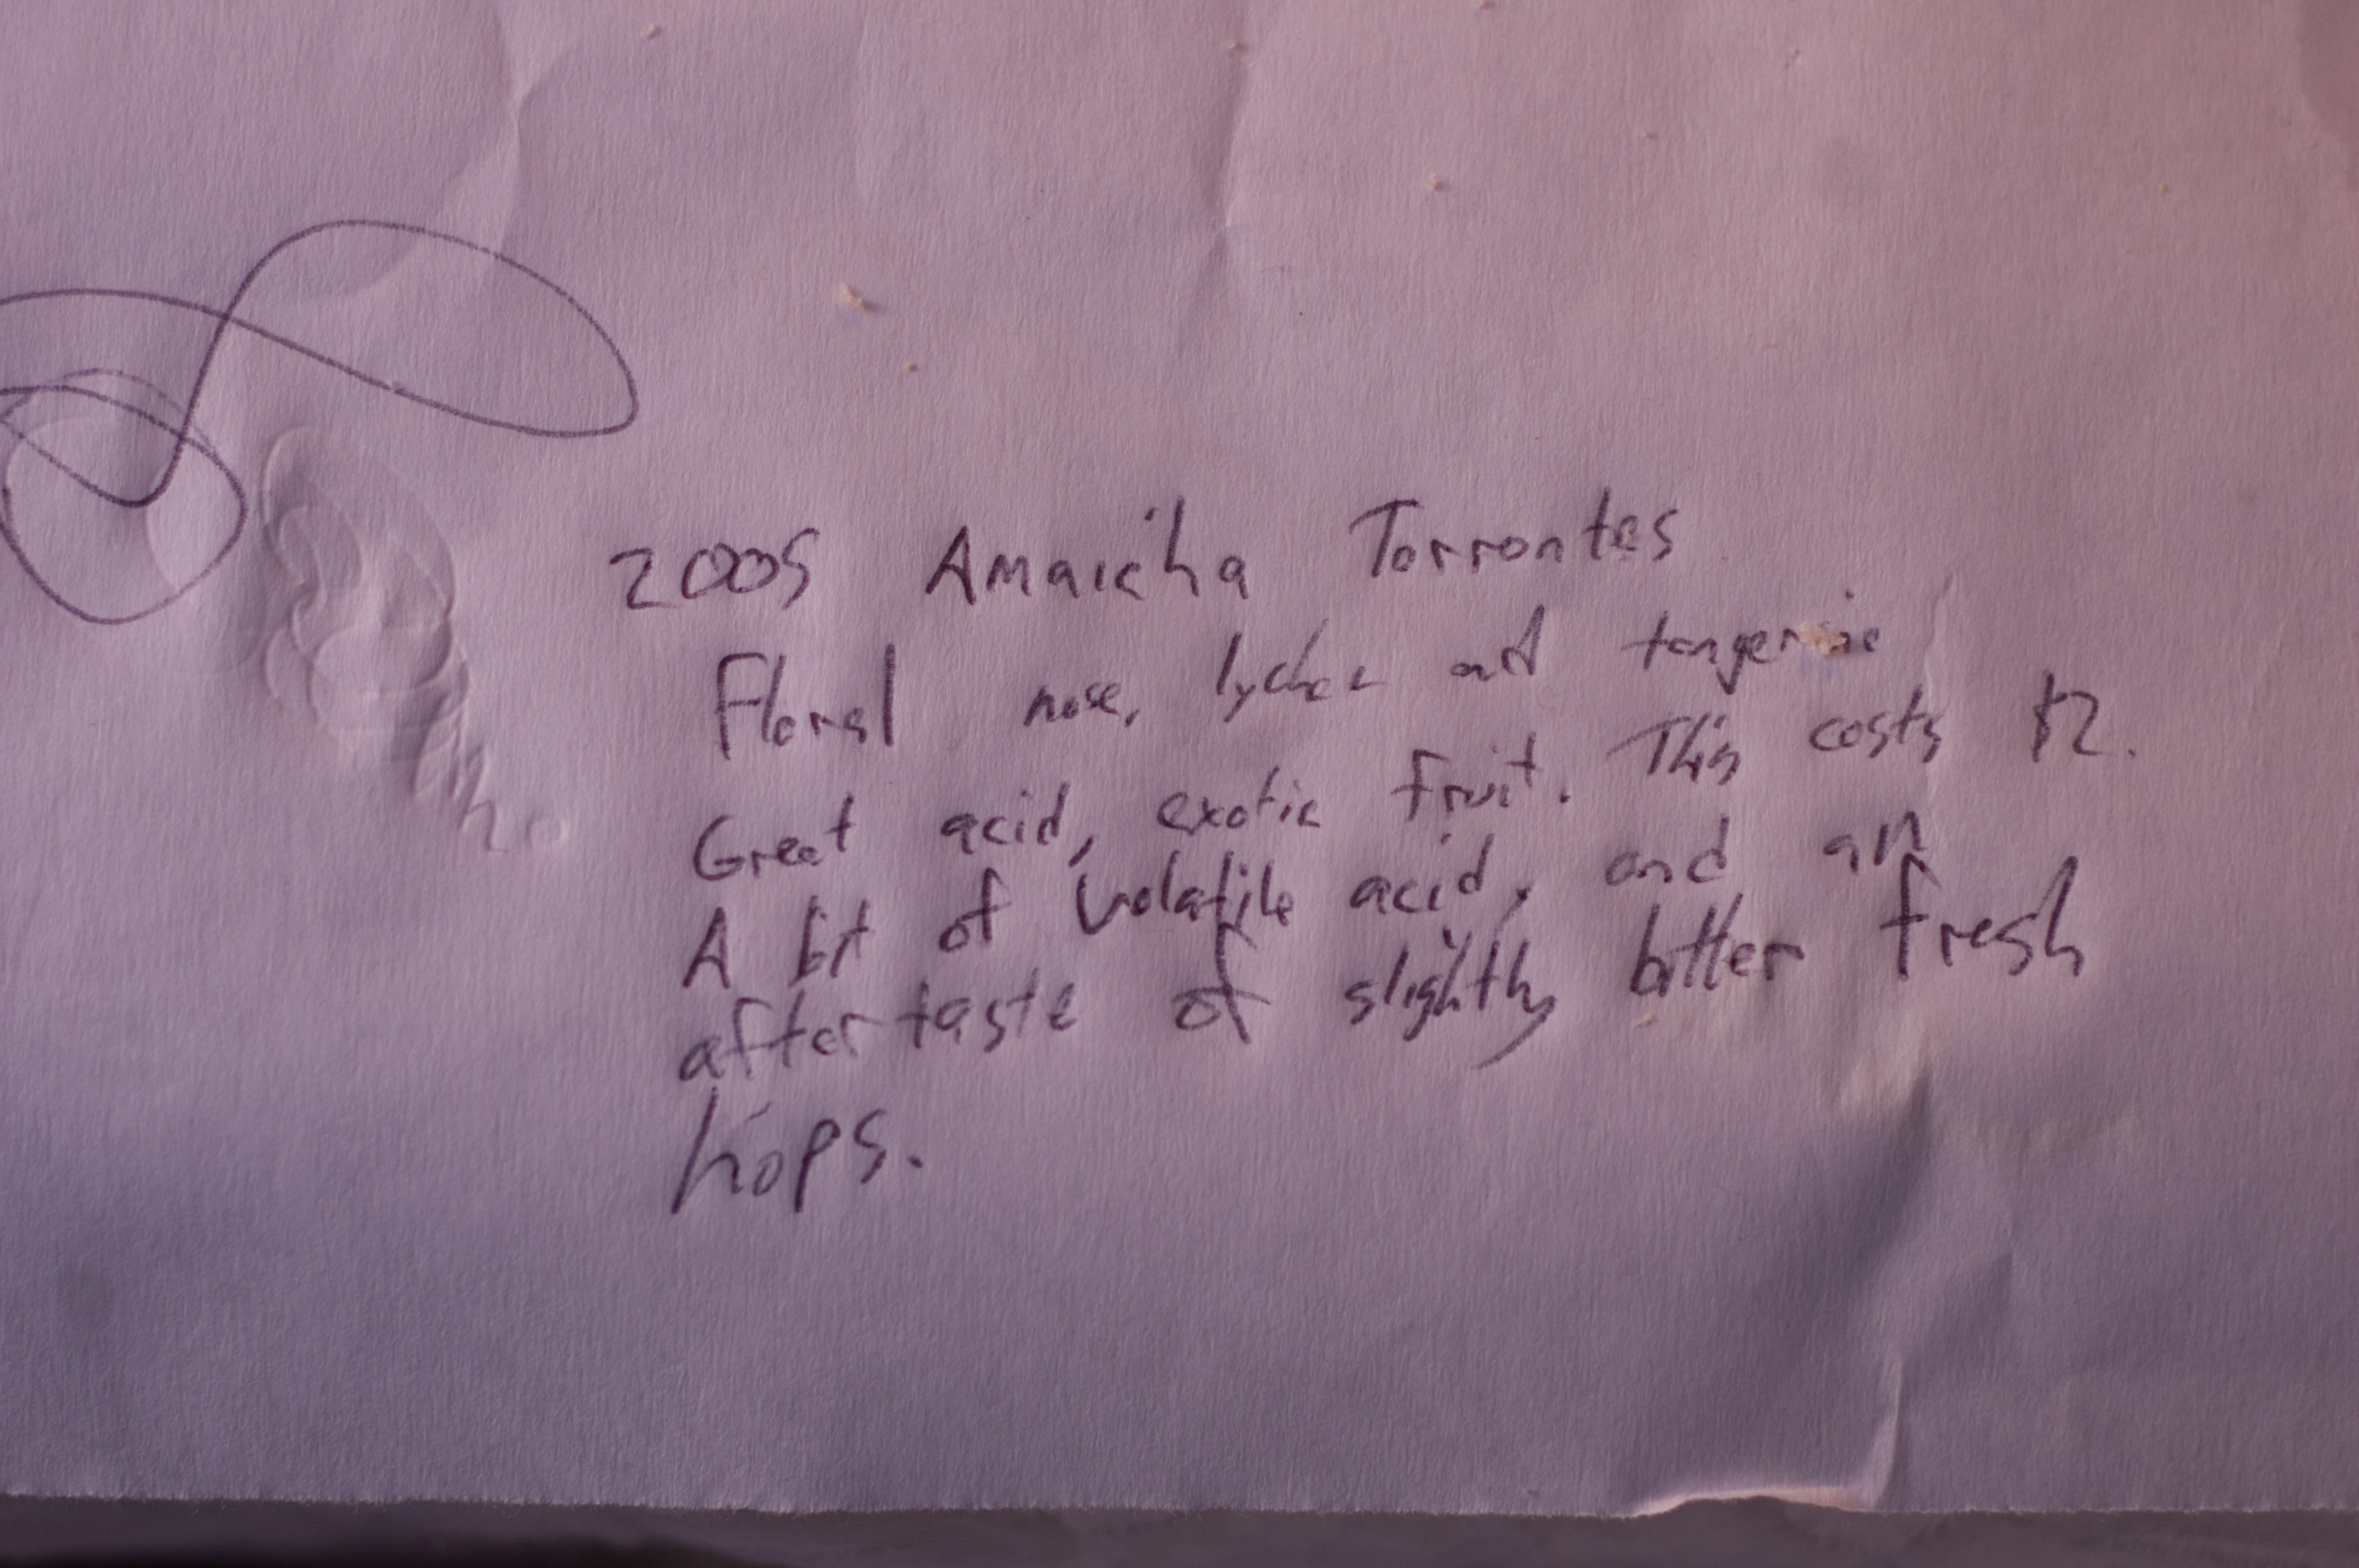 2005 Amaicha Torrontes
Floral nose, lychee and tangerine
Great acid, exotic fruit. This costs $2.
A bit of volatile acid, and an
aftertaste of slightly bitter fresh
hops.